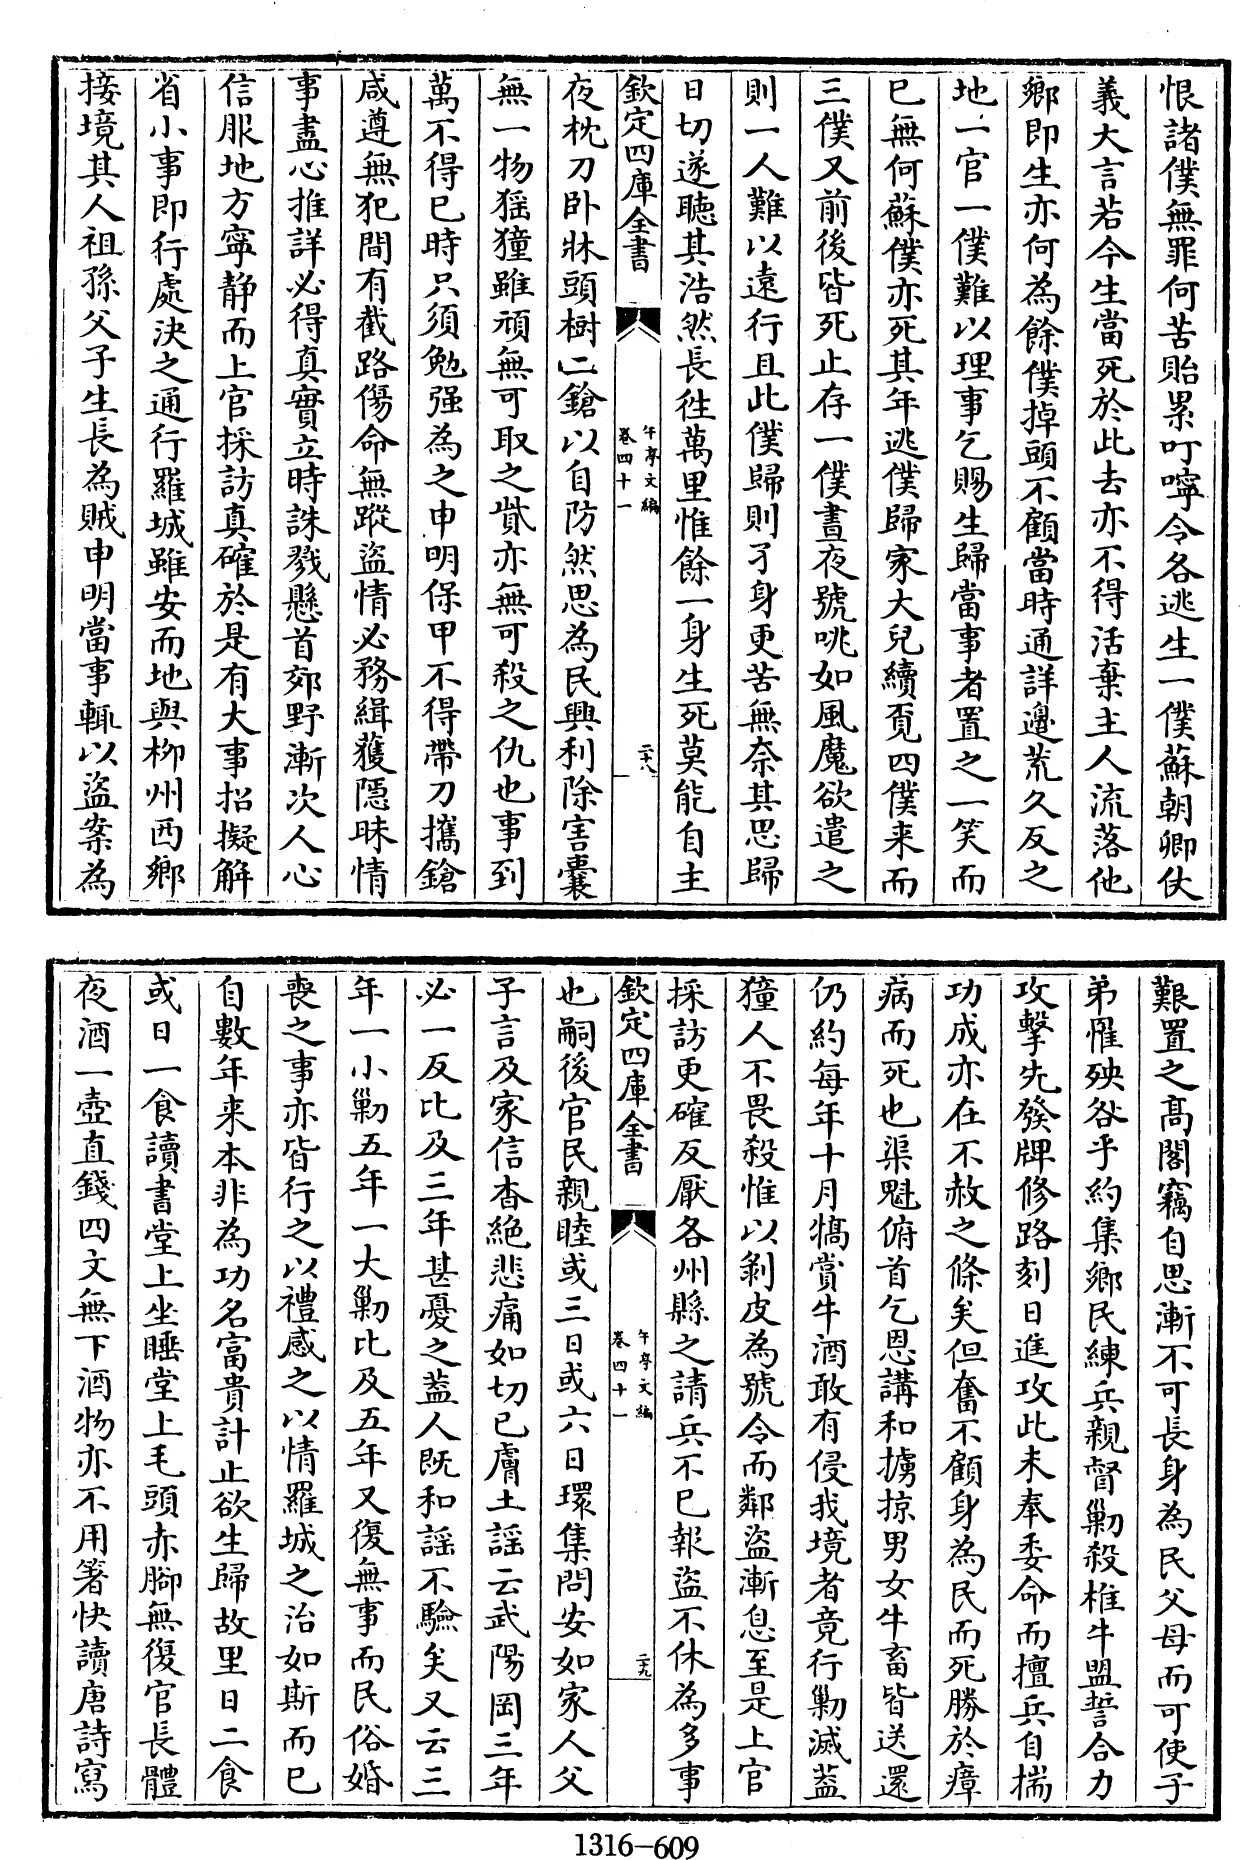 恨諸僕無罪何苦貽累叮嚀令各逃生一僕蘇朝卿仗
義大言若今生當死於此去亦不得活棄主人流落他
鄉即生亦何為餘僕掉頭不顧當時通詳邊荒久反之
地一官一僕難以理事乞賜生歸當事者置之一笑而
已無何蘇僕亦死其年逃僕歸家大兒續覓四僕来而
三僕又前後皆死止存一僕晝夜號咷如風魔欲遣之
則一人難以遠行且此僕歸則孑身更苦無奈其思歸
日切遂聽其浩然長徃萬里惟餘一身生死莫能自主
欽定四庫全書
午亭文編
卷四十一
二十八
夜枕刀卧牀頭樹二鎗以自防然思為民興利除害囊
無一物猺獞雖頑無可取之貲亦無可殺之仇也事到
萬不得已時只須勉强為之申明保甲不得帶刀攜鎗
咸遵無犯間有截路傷命無蹤盜情必務緝獲隱昧情
事盡心推詳必得真實立時誅戮懸首郊野漸次人心
信服地方寧静而上官採訪真確於是有大事招擬解
省小事即行處決之通行羅城雖安而地與柳州西鄉
接境其人祖孫父子生長為賊申明當事輒以盜案為
艱置之高閣竊自思漸不可長身為民父母而可使子
弟罹殃咎乎約集鄉民練兵親督勦殺椎牛盟誓合力
攻擊先發牌修路刻日進攻此未奉委命而擅兵自揣
功成亦在不赦之條矣但奮不顧身為民而死勝於瘴
病而死也渠魁俯首乞恩講和擄掠男女牛畜皆送還
仍約每年十月犒賞牛酒敢有侵我境者竟行勦滅葢
獞人不畏殺惟以剝皮為號令而鄰盜漸息至是上官
採訪更確反厭各州縣之請兵不已報盜不休為多事
欽定四庫全書
午亭文編
卷四十一
二十九
也嗣後官民親睦或三日或六日環集問安如家人父
子言及家信杳絶悲痛如切已膚土謡云武陽岡三年
必一反比及三年甚憂之葢人既和謡不驗矣又云三
年一小勦五年一大勦比及五年又復無事而民俗婚
喪之事亦皆行之以禮感之以情羅城之治如斯而已
自數年来本非為功名富貴計止欲生歸故里日二食
或日一食讀書堂上坐睡堂上毛頭赤腳無復官長體
夜酒一壺直錢四文無下酒物亦不用箸快讀唐詩寫
1316-609